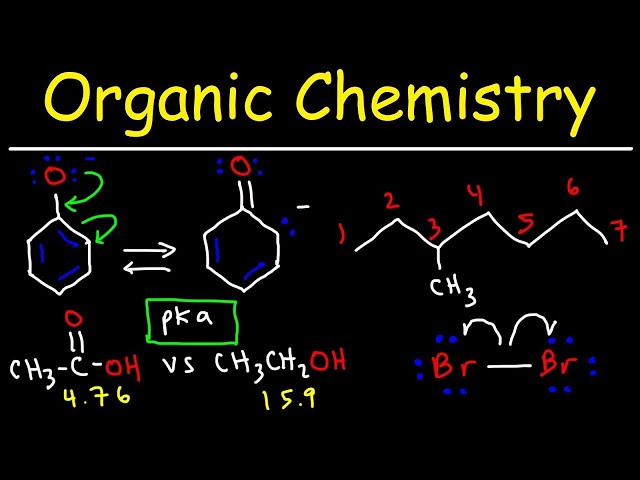 Organic Chemistry
O -
O -
1 2 3 4 5 6 7
CH3
O
pka
CH3-C-OH vs CH3CH2OH
4.76 15.9
Br — Br